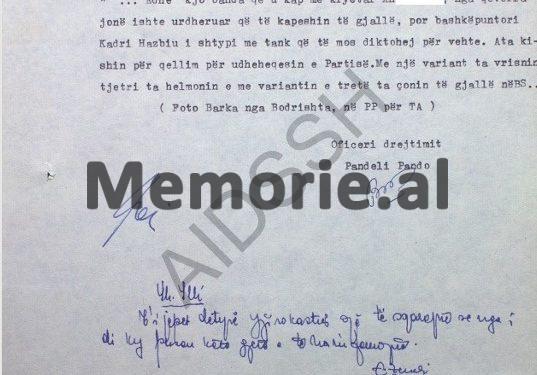 jonë ishte urdheruar që të kapeshin të gjallë, por bashkëpuntori
Kadri Hazbiu i shtypi me tank që të mos diktohej për vehte. Ata ki-
shin për qellim për udheheqesin e Partisë.Me një variant ta vrisnin
tjetri ta helmonin e me variantin e tretë ta çonin të gjallë nëBS..
( Foto Barka nga Bodrishta, në PP për TA )
Oficeri drejtimit
Pandeli Pando
Memorie.al
AIDSSH
Sh. Illi
T'i jepet detyrë Gjirokastrës që të sqarojnë se nga i
di ky person këto gjëra e të na informojnë.